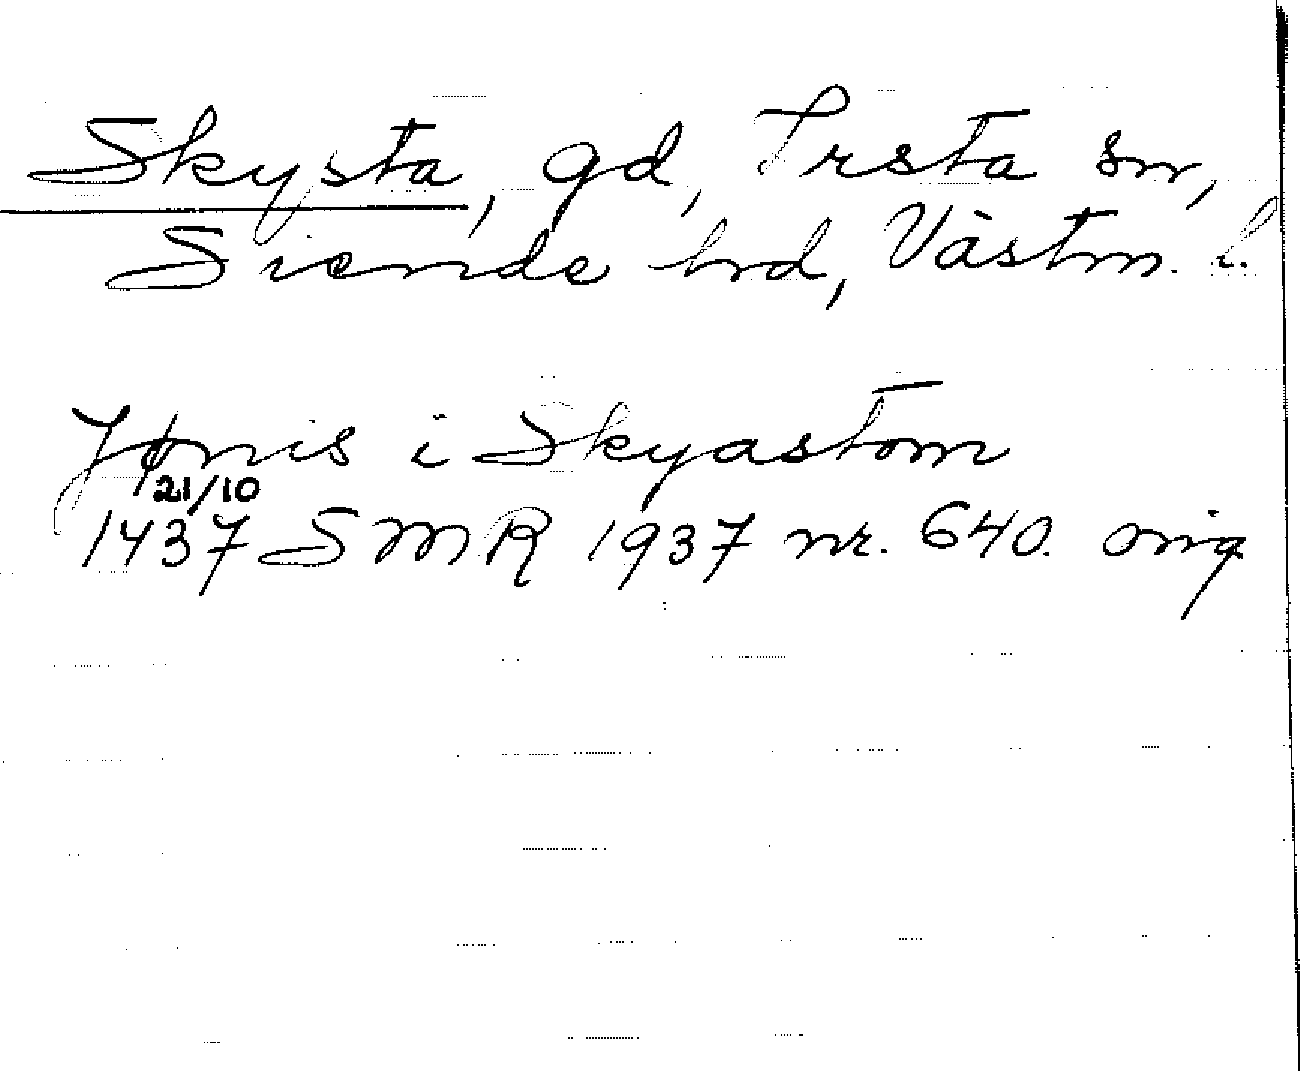 Skysta, gd, Irsta sn,
Siende hrd, Västm. l.
Jønis i Skyastom
21/10
1437 SMR 1937 nr. 640. orig